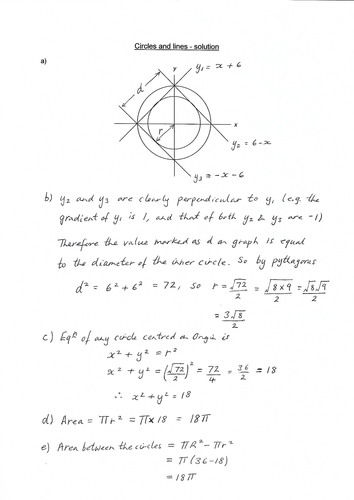 Circles and lines - solution
a)
y
y₁ = x + 6
d
r
x
y₂ = 6-x
y₃ = -x-6
b) y₂ and y₃ are clearly perpendicular to y₁ (e.g. the
gradient of y₁ is 1, and that of both y₂ & y₃ are -1)
Therefore the value marked as d on graph is equal
to the diameter of the inner circle. So by pythagoras
d² = 6² + 6² = 72, so r = √72/2 = √(8×9)/2 = √8√9/2
= 3√8/2
c) Eqⁿ of any circle centred on Origin is
x² + y² = r²
x² + y² = (√72/2)² = 72/4 = 36/2 = 18
∴ x² + y² = 18
d) Area = πr² = π×18 = 18π
e) Area between the circles = πR² - πr²
= π(36-18)
= 18π